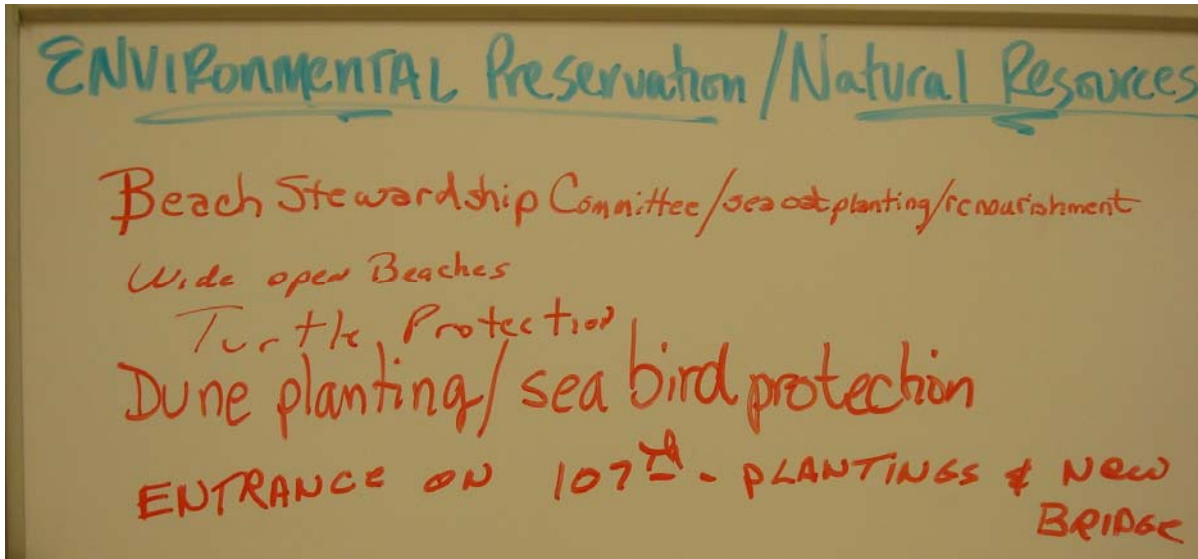 ENVIRonmENTAL Preservation / Natural Resources
Beach Stewardship Committee/sea oat planting/renourishment
Wide open Beaches
Turtle Protection
Dune planting/ sea bird protection
ENTRANCE ON 107th - PLANTINGS & NEW
BRIDGE